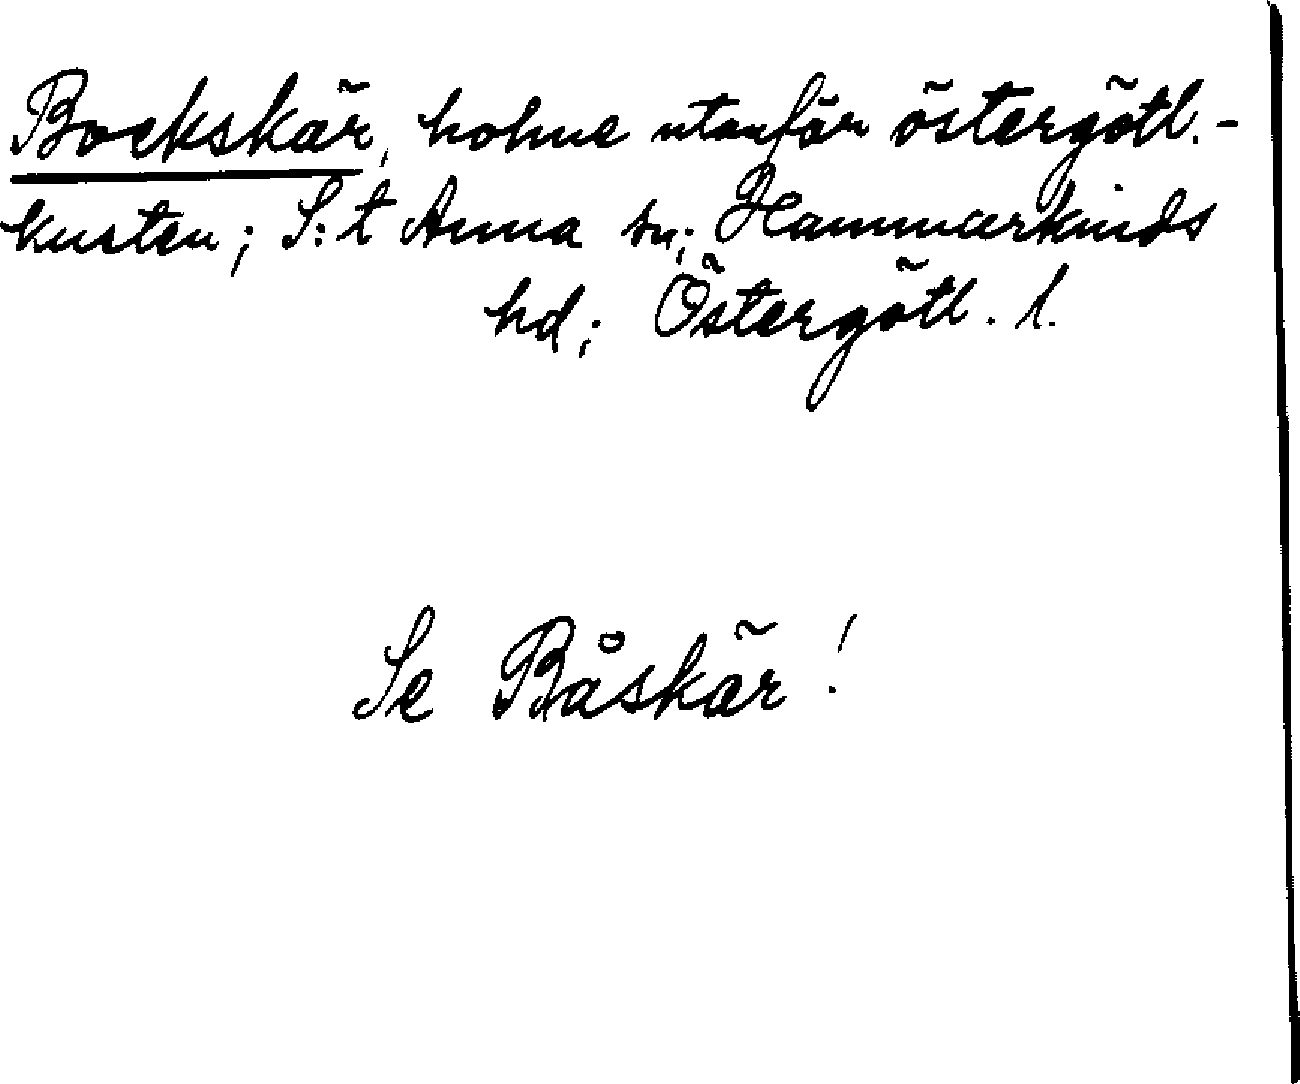 Bockskär, holme utanför östergötl.-
kusten; S:t Anna sn; Hammarkinds
hd; Östergötl. l.
Se Båskär!